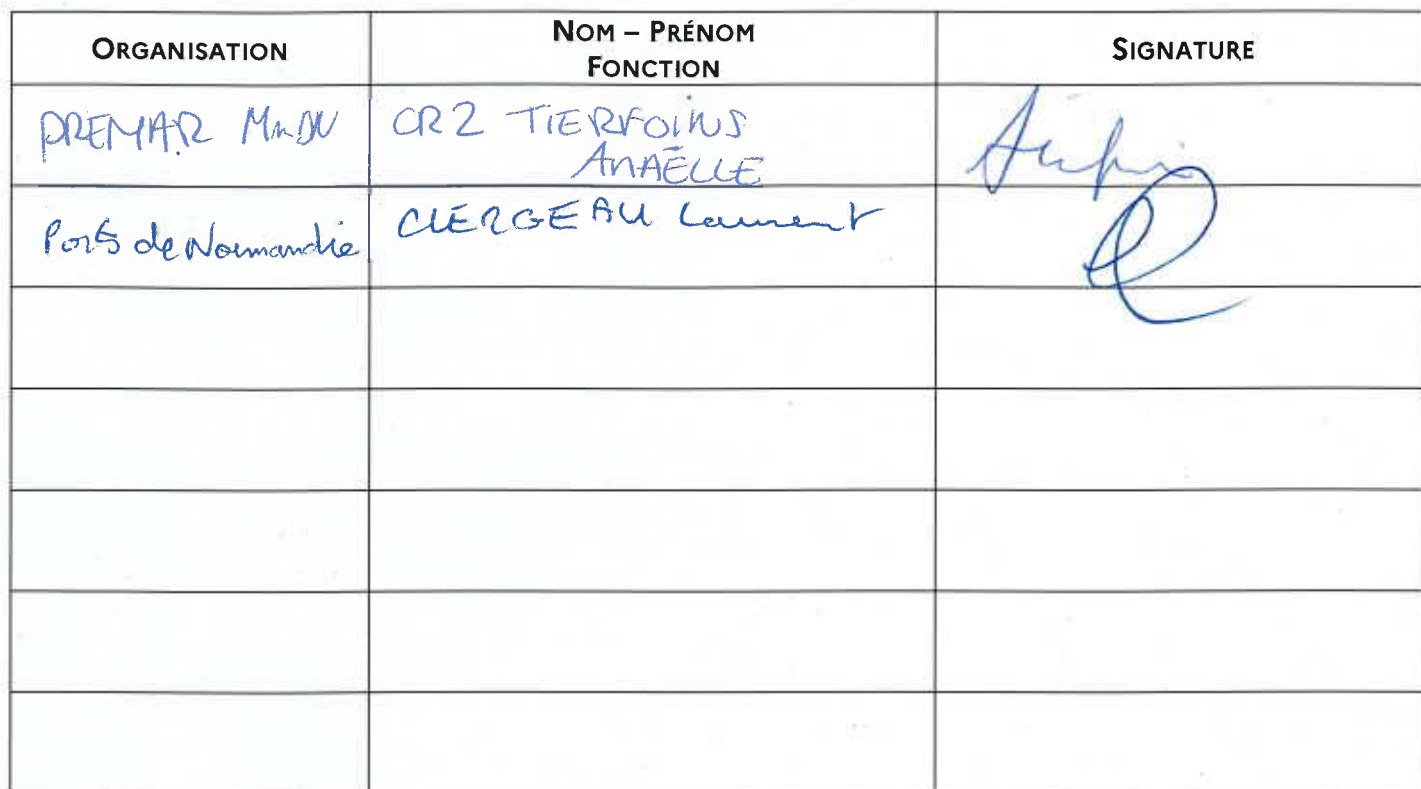 ORGANISATION
NOM – PRÉNOM
FONCTION
SIGNATURE
PREMAR
CR2 TIERFOINS
ANAËLLE
Ports de Normandie
CLERGEAU Laurent